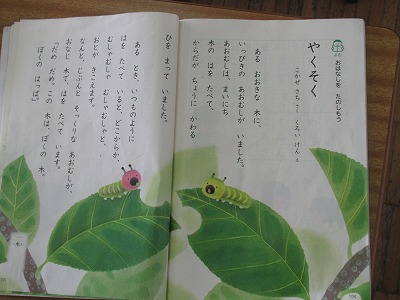 おはなしを たのしもう
やくそく
こかぜ さち さく くろい けん え
ある おおきな 木に、
いっぴきの あおむしが いました。
あおむしは、まいにち
木の はを たべて、
からだが ちょうに かわる
ひを まって いました。
ある とき、いつものように
はを たべて いると、どこからか、
むしゃむしゃ むしゃむしゃと、
おとが きこえます。
なんと、じぶんと そっくりな あおむしが、
おなじ 木で、はを たべて います。
「だめ だめ。この 木は、ぼくの 木。
ぼくの はっぱ。」
木